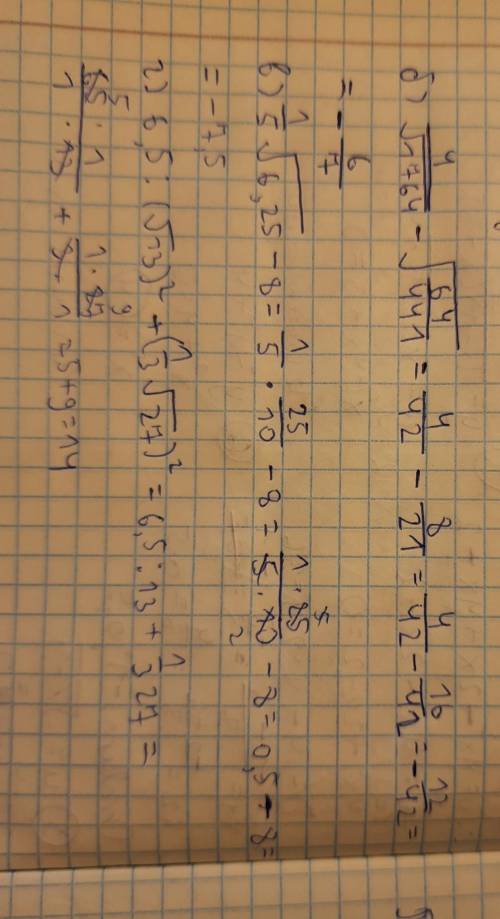 б) 4/√1764 - √(64/441) = 4/42 - 8/21 = 4/42 - 16/42 = - 12/42 =
= - 6/7
в) 1/5 √6,25 - 8 = 1/5 · 25/10 - 8 = 1·25/5·10 - 8 = 0,5 - 8 =
= -7,5
г) 6,5 : (√13)² + (1/3 √27)² = 6,5 : 13 + 1/3 27 =